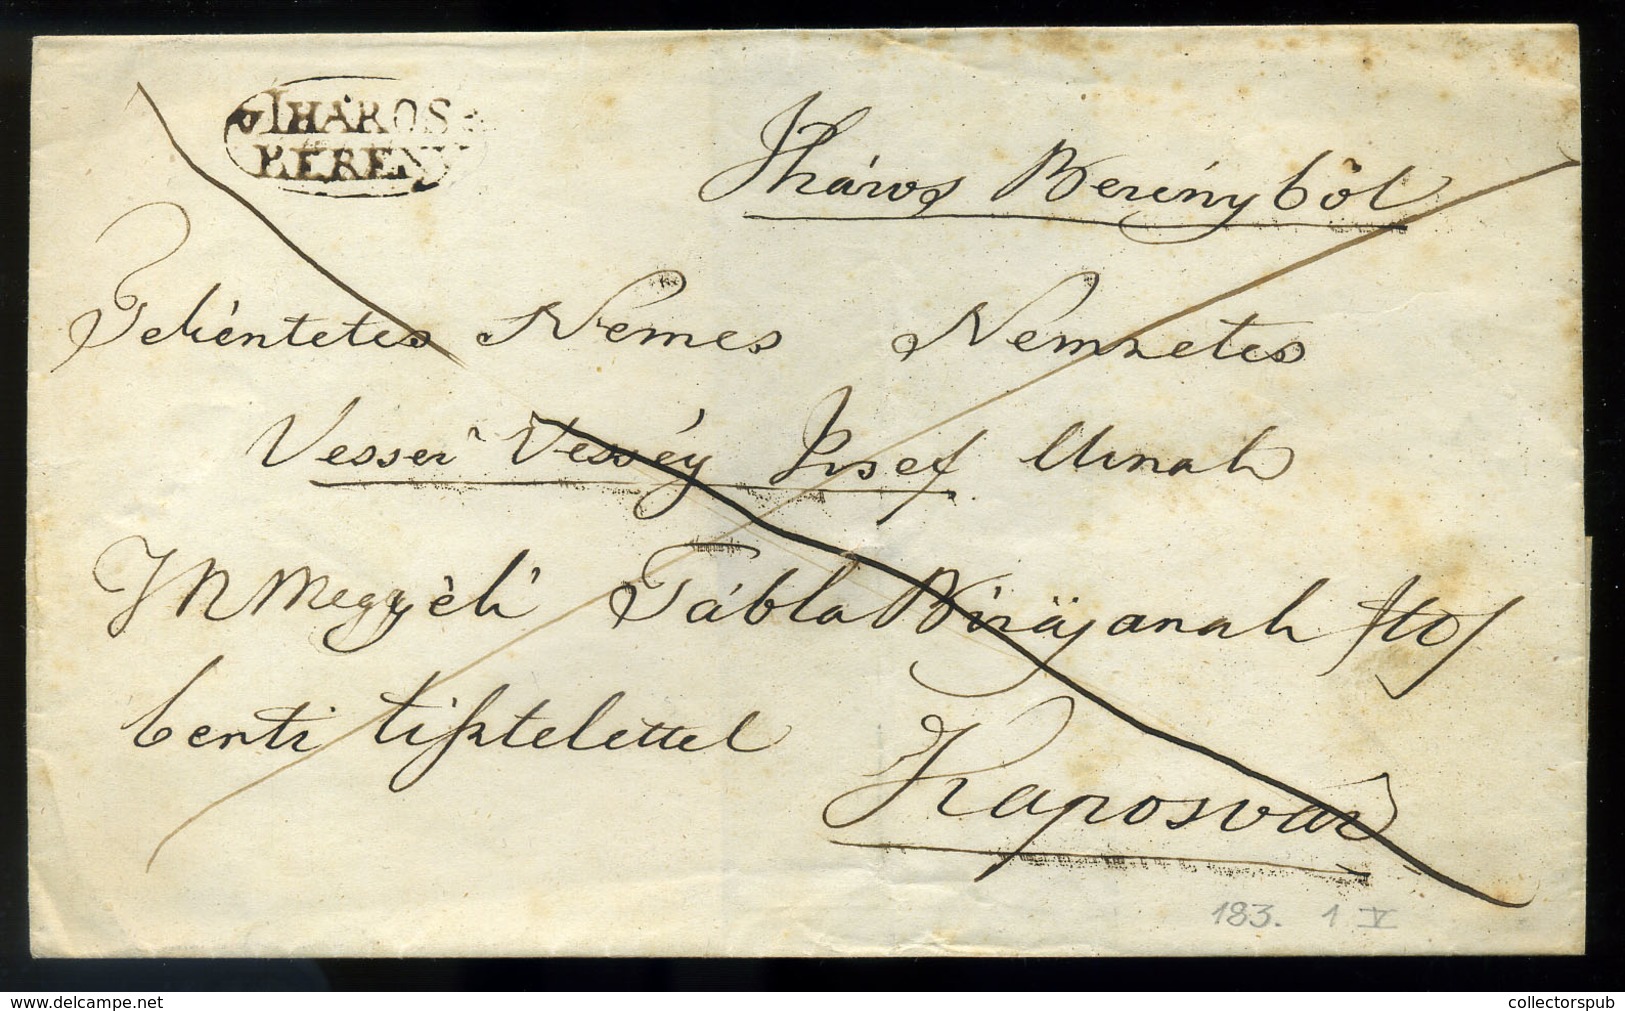 IHAROS
BERENY
Iháros Berényböl
Tekéntetes Nemes Nemzetes
Vessei Vesséy Josef Urnak
Megyéli Tábla Birájanak
benti tisztelettel
Kaposvár
183. 1 V
www.delcampe.net
collectorspub